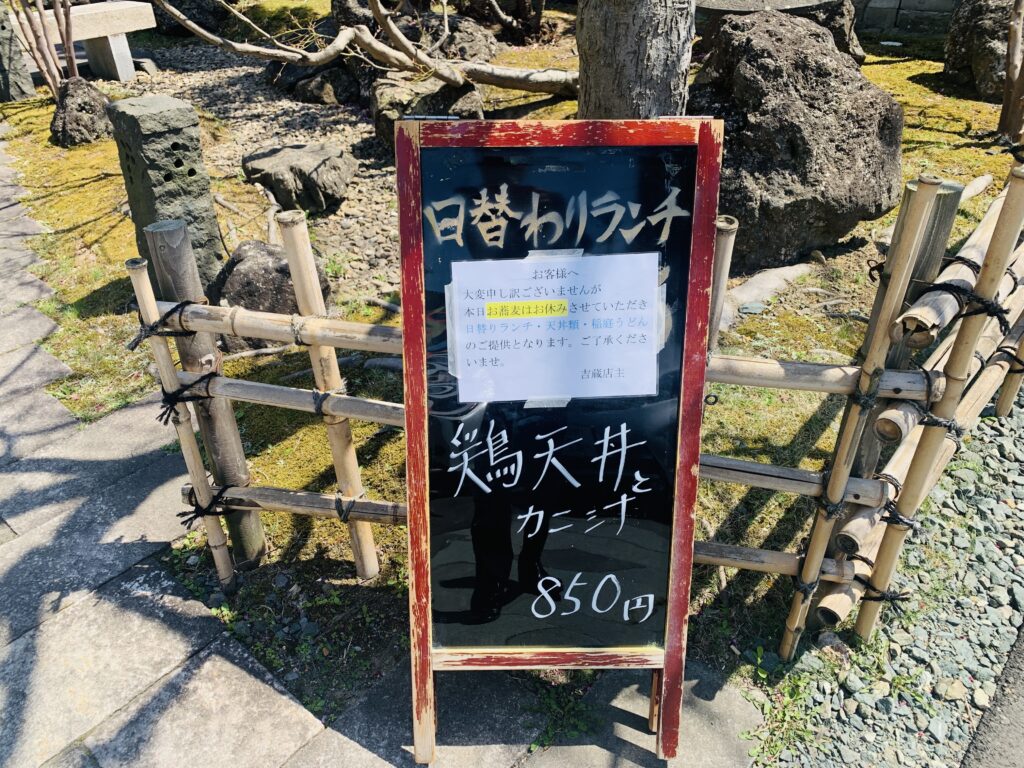 日替わりランチ
お客様へ
大変申し訳ございませんが
本日お蕎麦はお休みさせていただき
日替りランチ・天丼類・稲庭うどん
のご提供となります。ご了承くださ
いませ。
吉蔵店主
鶏天丼と
カニシナ
850円